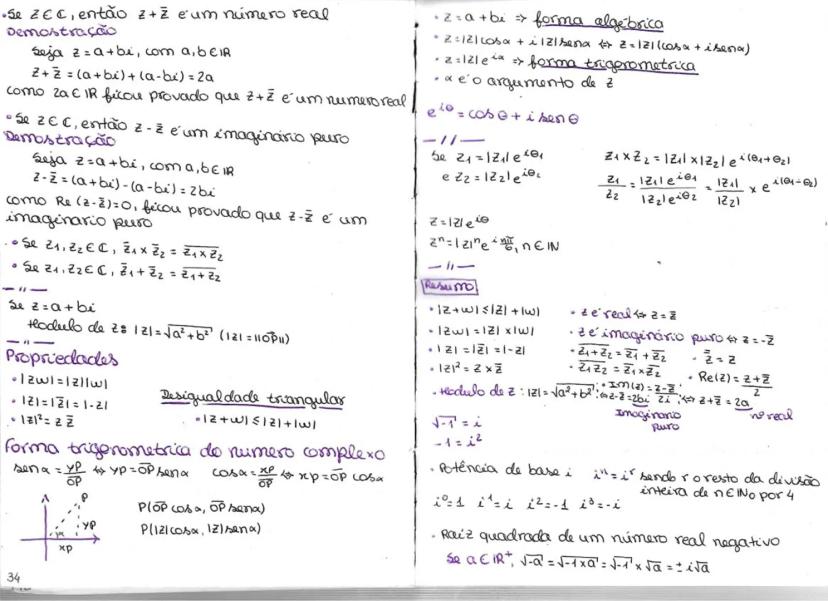 • Se z∈ℂ, então z+z̄ é um número real
Demostração
Seja z=a+bi, com a,b∈IR
z+z̄ = (a+bi)+(a-bi) = 2a
como 2a∈IR ficou provado que z+z̄ é um numero real
• Se z∈ℂ, então z-z̄ é um imaginário puro
Demostração
Seja z=a+bi, com a,b∈IR
z-z̄ = (a+bi)-(a-bi) = 2bi
como Re(z-z̄)=0, ficou provado que z-z̄ é um
imaginário puro
• Se z₁,z₂∈ℂ, z̄₁ × z̄₂ = \overline{z₁×z₂}
• Se z₁,z₂∈ℂ, z̄₁+z̄₂ = \overline{z₁+z₂}
— 11 —
Se z=a+bi
Modulo de z: |z|=√(a²+b²) (|z|=||OP||)
— 11 —
Propriedades
• |zw|=|z||w|
• |z|=|z̄|=|-z|
• |z|²=z z̄
Desigualdade triangular
• |z+w|≤|z|+|w|
Forma trigonometrica do numero complexo
sen α = yp/OP ⇔ yp=OP sen α cos α = xp/OP ⇔ xp=OP cos α
P
yp
α
xp
P(OP cos α, OP sen α)
P(|z|cos α, |z|sen α)
34
• z=a+bi ⇒ forma algébrica
• z=|z|cos α + i|z|sen α ⇔ z=|z|(cos α + i sen α)
• z=|z|e^{iα} ⇒ forma trigonometrica
• α é o argumento de z
e^{iθ} = cos θ + i sen θ
— 11 —
Se z₁=|z₁|e^{iθ₁} z₁×z₂=|z₁|×|z₂|e^{i(θ₁+θ₂)}
e z₂=|z₂|e^{iθ₂} z₁/z₂ = |z₁|e^{iθ₁}/|z₂|e^{iθ₂} = |z₁|/|z₂| × e^{i(θ₁-θ₂)}
z=|z|e^{iθ}
zⁿ=|z|ⁿ e^{i nπ/6}, n∈IN
— 11 —
Resumo
• |z+w|≤|z|+|w| • z é real ⇔ z=z̄
• |zw|=|z|×|w| • z é imaginário puro ⇔ z=-z̄
• |z|=|z̄|=|-z| • \overline{z₁+z₂}=z̄₁+z̄₂ • \overline{z̄}=z
• |z|²=z×z̄ • \overline{z₁z₂}=z̄₁×z̄₂ • Re(z)=(z+z̄)/2
• Modulo de z: |z|=√(a²+b²) • Im(z)=(z-z̄)/2i ⇔ z-z̄=2bi ⇔ z+z̄=2a
Imaginário puro nº real
√-1=i
-1=i²
• Potência de base i iⁿ=iʳ sendo r o resto da divisão
inteira de n∈IN₀ por 4
i⁰=1 i¹=i i²=-1 i³=-i
• Raiz quadrada de um número real negativo
Se a∈IR⁺, √-a=√(-1×a)=√-1×√a=±i√a